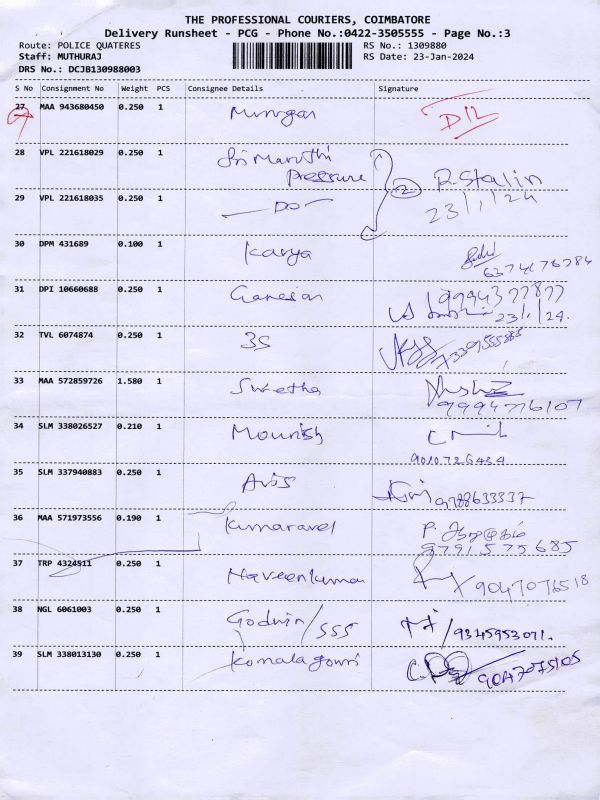 THE PROFESSIONAL COURIERS, COIMBATORE
Delivery Runsheet - PCG - Phone No.:0422-3505555 - Page No.:3
Route: POLICE QUATERES RS No.: 1309880
Staff: MUTHURAJ RS Date: 23-Jan-2024
DRS No.: DCJB130988003
S No Consignment No Weight PCS Consignee Details Signature
27 MAA 943680450 0.250 1 Murugan
28 VPL 221618029 0.250 1 Sri Maruthi
Pressure
2 R. Stalin
23/1/24
29 VPL 221618035 0.250 1 — DO —
30 DPM 431689 0.100 1 Karya
6374676284
31 DPI 10660688 0.250 1 Ganesan 9994377877
23/1/24.
32 TVL 6074874 0.250 1 3S 7339555885
33 MAA 572859726 1.580 1 Swetha
9994776107
34 SLM 338026527 0.210 1 Mounish
9010726434
35 SLM 337940883 0.250 1 Avis 9788633337
36 MAA 571973556 0.190 1 Kumaravel
9791575685
37 TRP 4324511 0.250 1 Naveenkumar 9047076518
38 NGL 6061003 0.250 1 Godwin/SSS 9345953071.
39 SLM 338013130 0.250 1 Komalagowri 9047075105